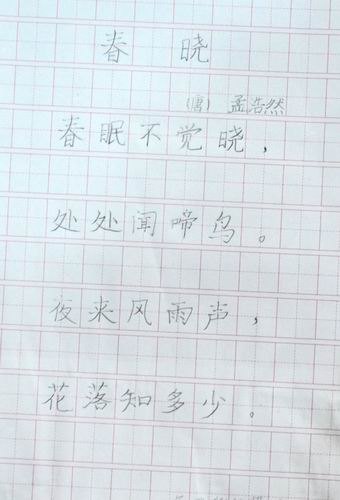 春 晓
(唐) 孟浩然
春眠不觉晓,
处处闻啼鸟。
夜来风雨声,
花落知多少。